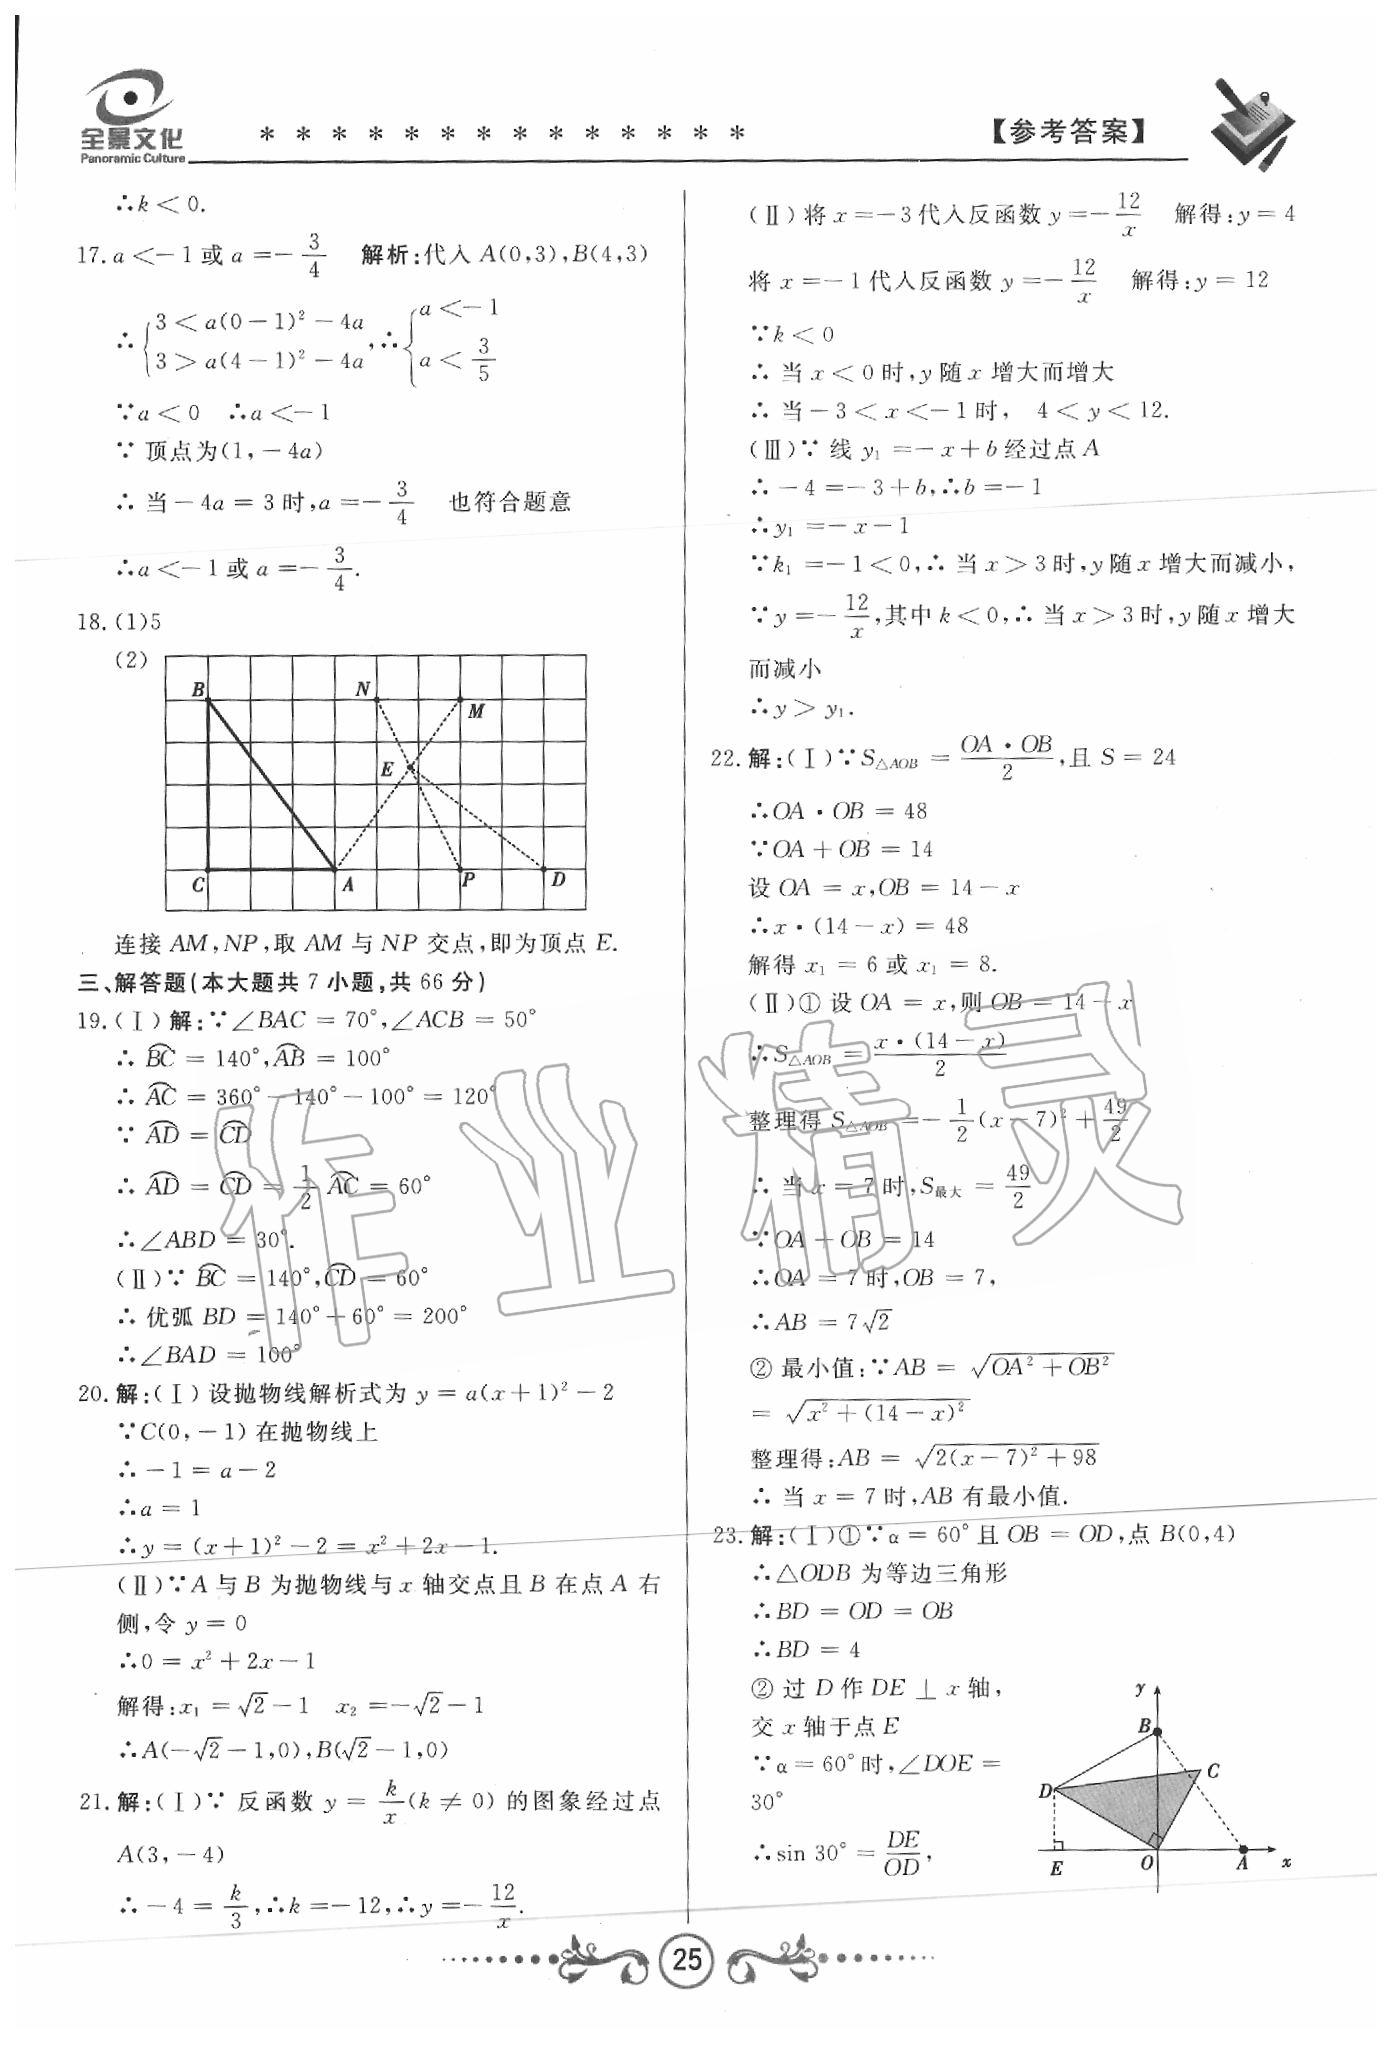 全景文化
Panoramic Culture
* * * * * * * * * * * * * *
【参考答案】
∴k<0.
17.a<-1或a=-3/4 解析:代入A(0,3),B(4,3)
∴{3<a(0-1)²-4a
3>a(4-1)²-4a,∴{a<-1
a<3/5
∵a<0 ∴a<-1
∵顶点为(1,-4a)
∴当-4a=3时,a=-3/4 也符合题意
∴a<-1或a=-3/4.
18.(1)5
(2)
B N M
E
C A P D
连接AM,NP,取AM与NP交点,即为顶点E.
三、解答题(本大题共7小题,共66分)
19.(Ⅰ)解:∵∠BAC=70°,∠ACB=50°
∴⌒BC=140°,⌒AB=100°
∴⌒AC=360°-140°-100°=120°
∵⌒AD=⌒CD
∴⌒AD=⌒CD=1/2⌒AC=60°
∴∠ABD=30°.
(Ⅱ)∵⌒BC=140°,⌒CD=60°
∴优弧BD=140°+60°=200°
∴∠BAD=100°
20.解:(Ⅰ)设抛物线解析式为y=a(x+1)²-2
∵C(0,-1)在抛物线上
∴-1=a-2
∴a=1
∴y=(x+1)²-2=x²+2x-1.
(Ⅱ)∵A与B为抛物线与x轴交点且B在点A右
侧,令y=0
∴0=x²+2x-1
解得:x₁=√2-1 x₂=-√2-1
∴A(-√2-1,0),B(√2-1,0)
21.解:(Ⅰ)∵反函数y=k/x(k≠0)的图象经过点
A(3,-4)
∴-4=k/3,∴k=-12,∴y=-12/x.
(Ⅱ)将x=-3代入反函数y=-12/x 解得:y=4
将x=-1代入反函数y=-12/x 解得:y=12
∵k<0
∴当x<0时,y随x增大而增大
∴当-3<x<-1时, 4<y<12.
(Ⅲ)∵线y₁=-x+b经过点A
∴-4=-3+b,∴b=-1
∴y₁=-x-1
∵k₁=-1<0,∴当x>3时,y随x增大而减小,
∵y=-12/x,其中k<0,∴当x>3时,y随x增大
而减小
∴y>y₁.
22.解:(Ⅰ)∵S△AOB=OA·OB/2,且S=24
∴OA·OB=48
∵OA+OB=14
设OA=x,OB=14-x
∴x·(14-x)=48
解得x₁=6或x₁=8.
(Ⅱ)①设OA=x,则OB=14-x
∴S△AOB=x·(14-x)/2
整理得S△AOB=-1/2(x-7)²+49/2
∴当x=7时,S最大=49/2
∵OA+OB=14
∴OA=7时,OB=7,
∴AB=7√2
②最小值:∵AB=√(OA²+OB²)
=√(x²+(14-x)²)
整理得:AB=√(2(x-7)²+98)
∴当x=7时,AB有最小值.
23.解:(Ⅰ)①∵α=60°且OB=OD,点B(0,4)
∴△ODB为等边三角形
∴BD=OD=OB
∴BD=4
②过D作DE⊥x轴,
交x轴于点E
∵α=60°时,∠DOE=
30°
∴sin30°=DE/OD,
y
B
C
D
E O A x
作业精灵
25